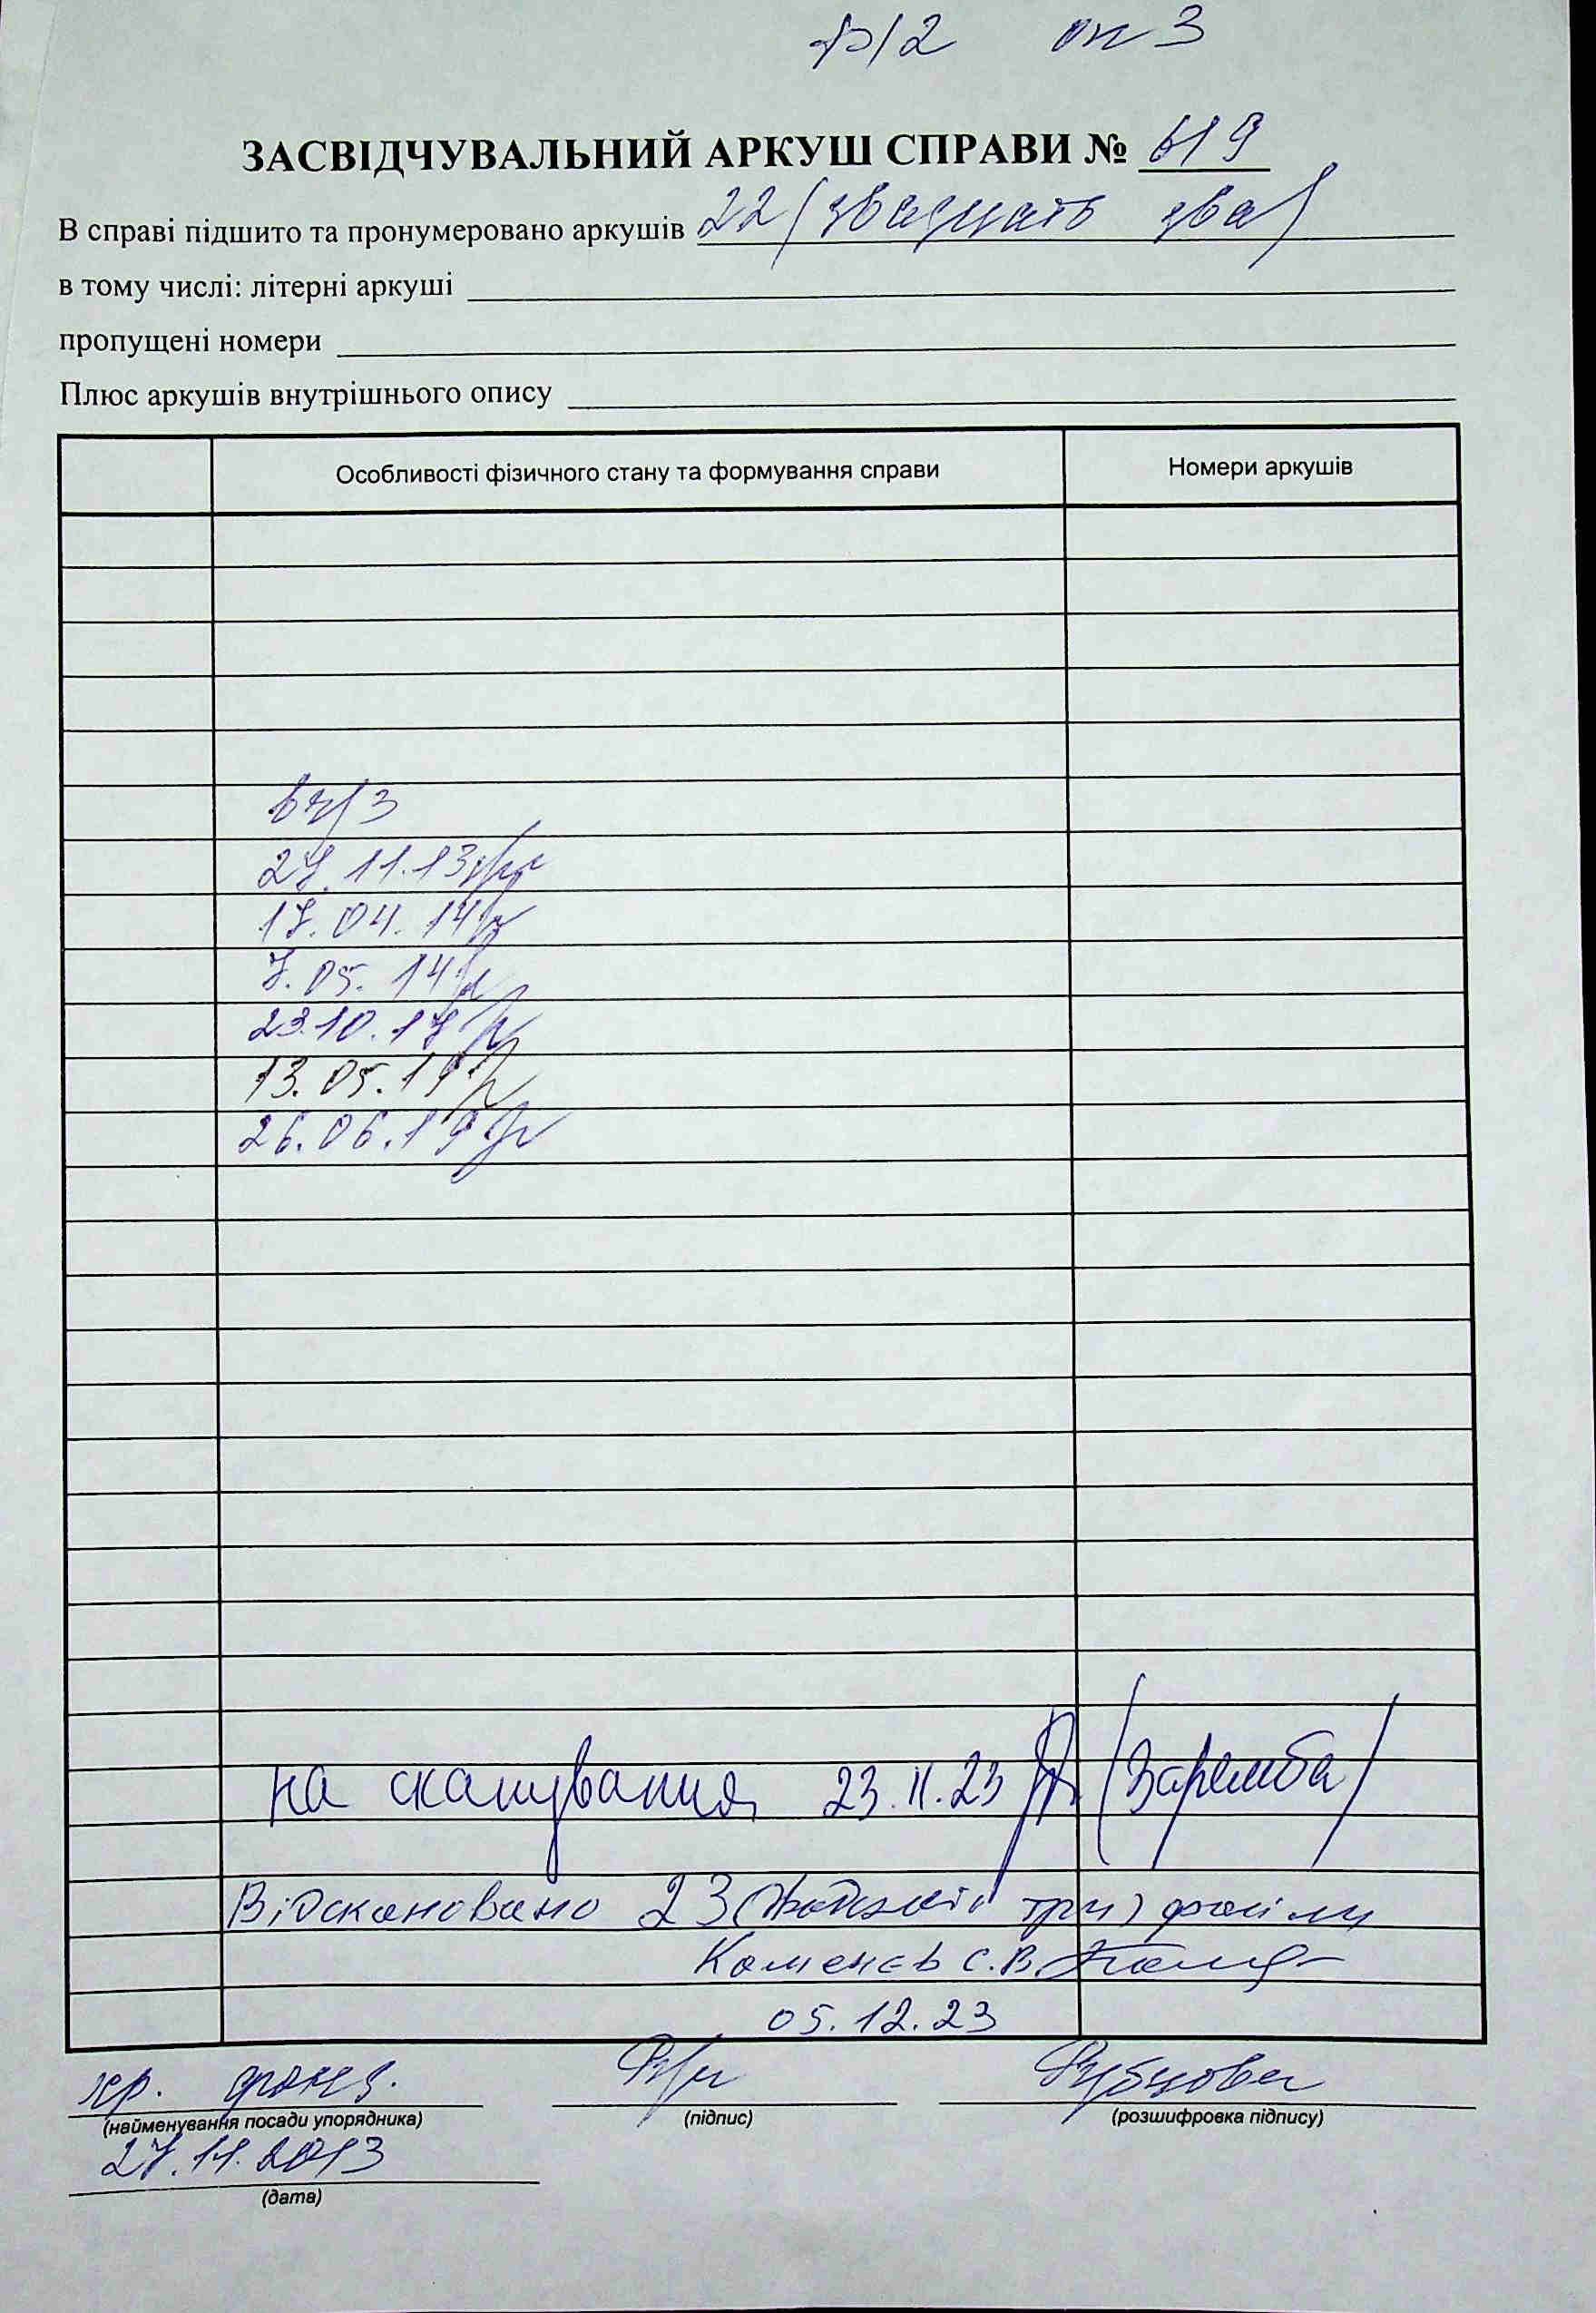 ф/2 оп 3
ЗАСВІДЧУВАЛЬНИЙ АРКУШ СПРАВИ № 619
В справі підшито та пронумеровано аркушів 22 (двадцать два)
в тому числі: літерні аркуші
пропущені номери
Плюс аркушів внутрішнього опису
Особливості фізичного стану та формування справи Номери аркушів
27.11.13
17.04.14
7.05.14
23.10.17
13.05.19
26.06.19
на сканування 23.11.23 (Заремба)
Відскановано 23 (двадцять три) файли
Каменєв С.В.
05.12.23
хр. фонд. Рубцова
(найменування посади упорядника) (підпис) (розшифровка підпису)
27.11.2013
(дата)